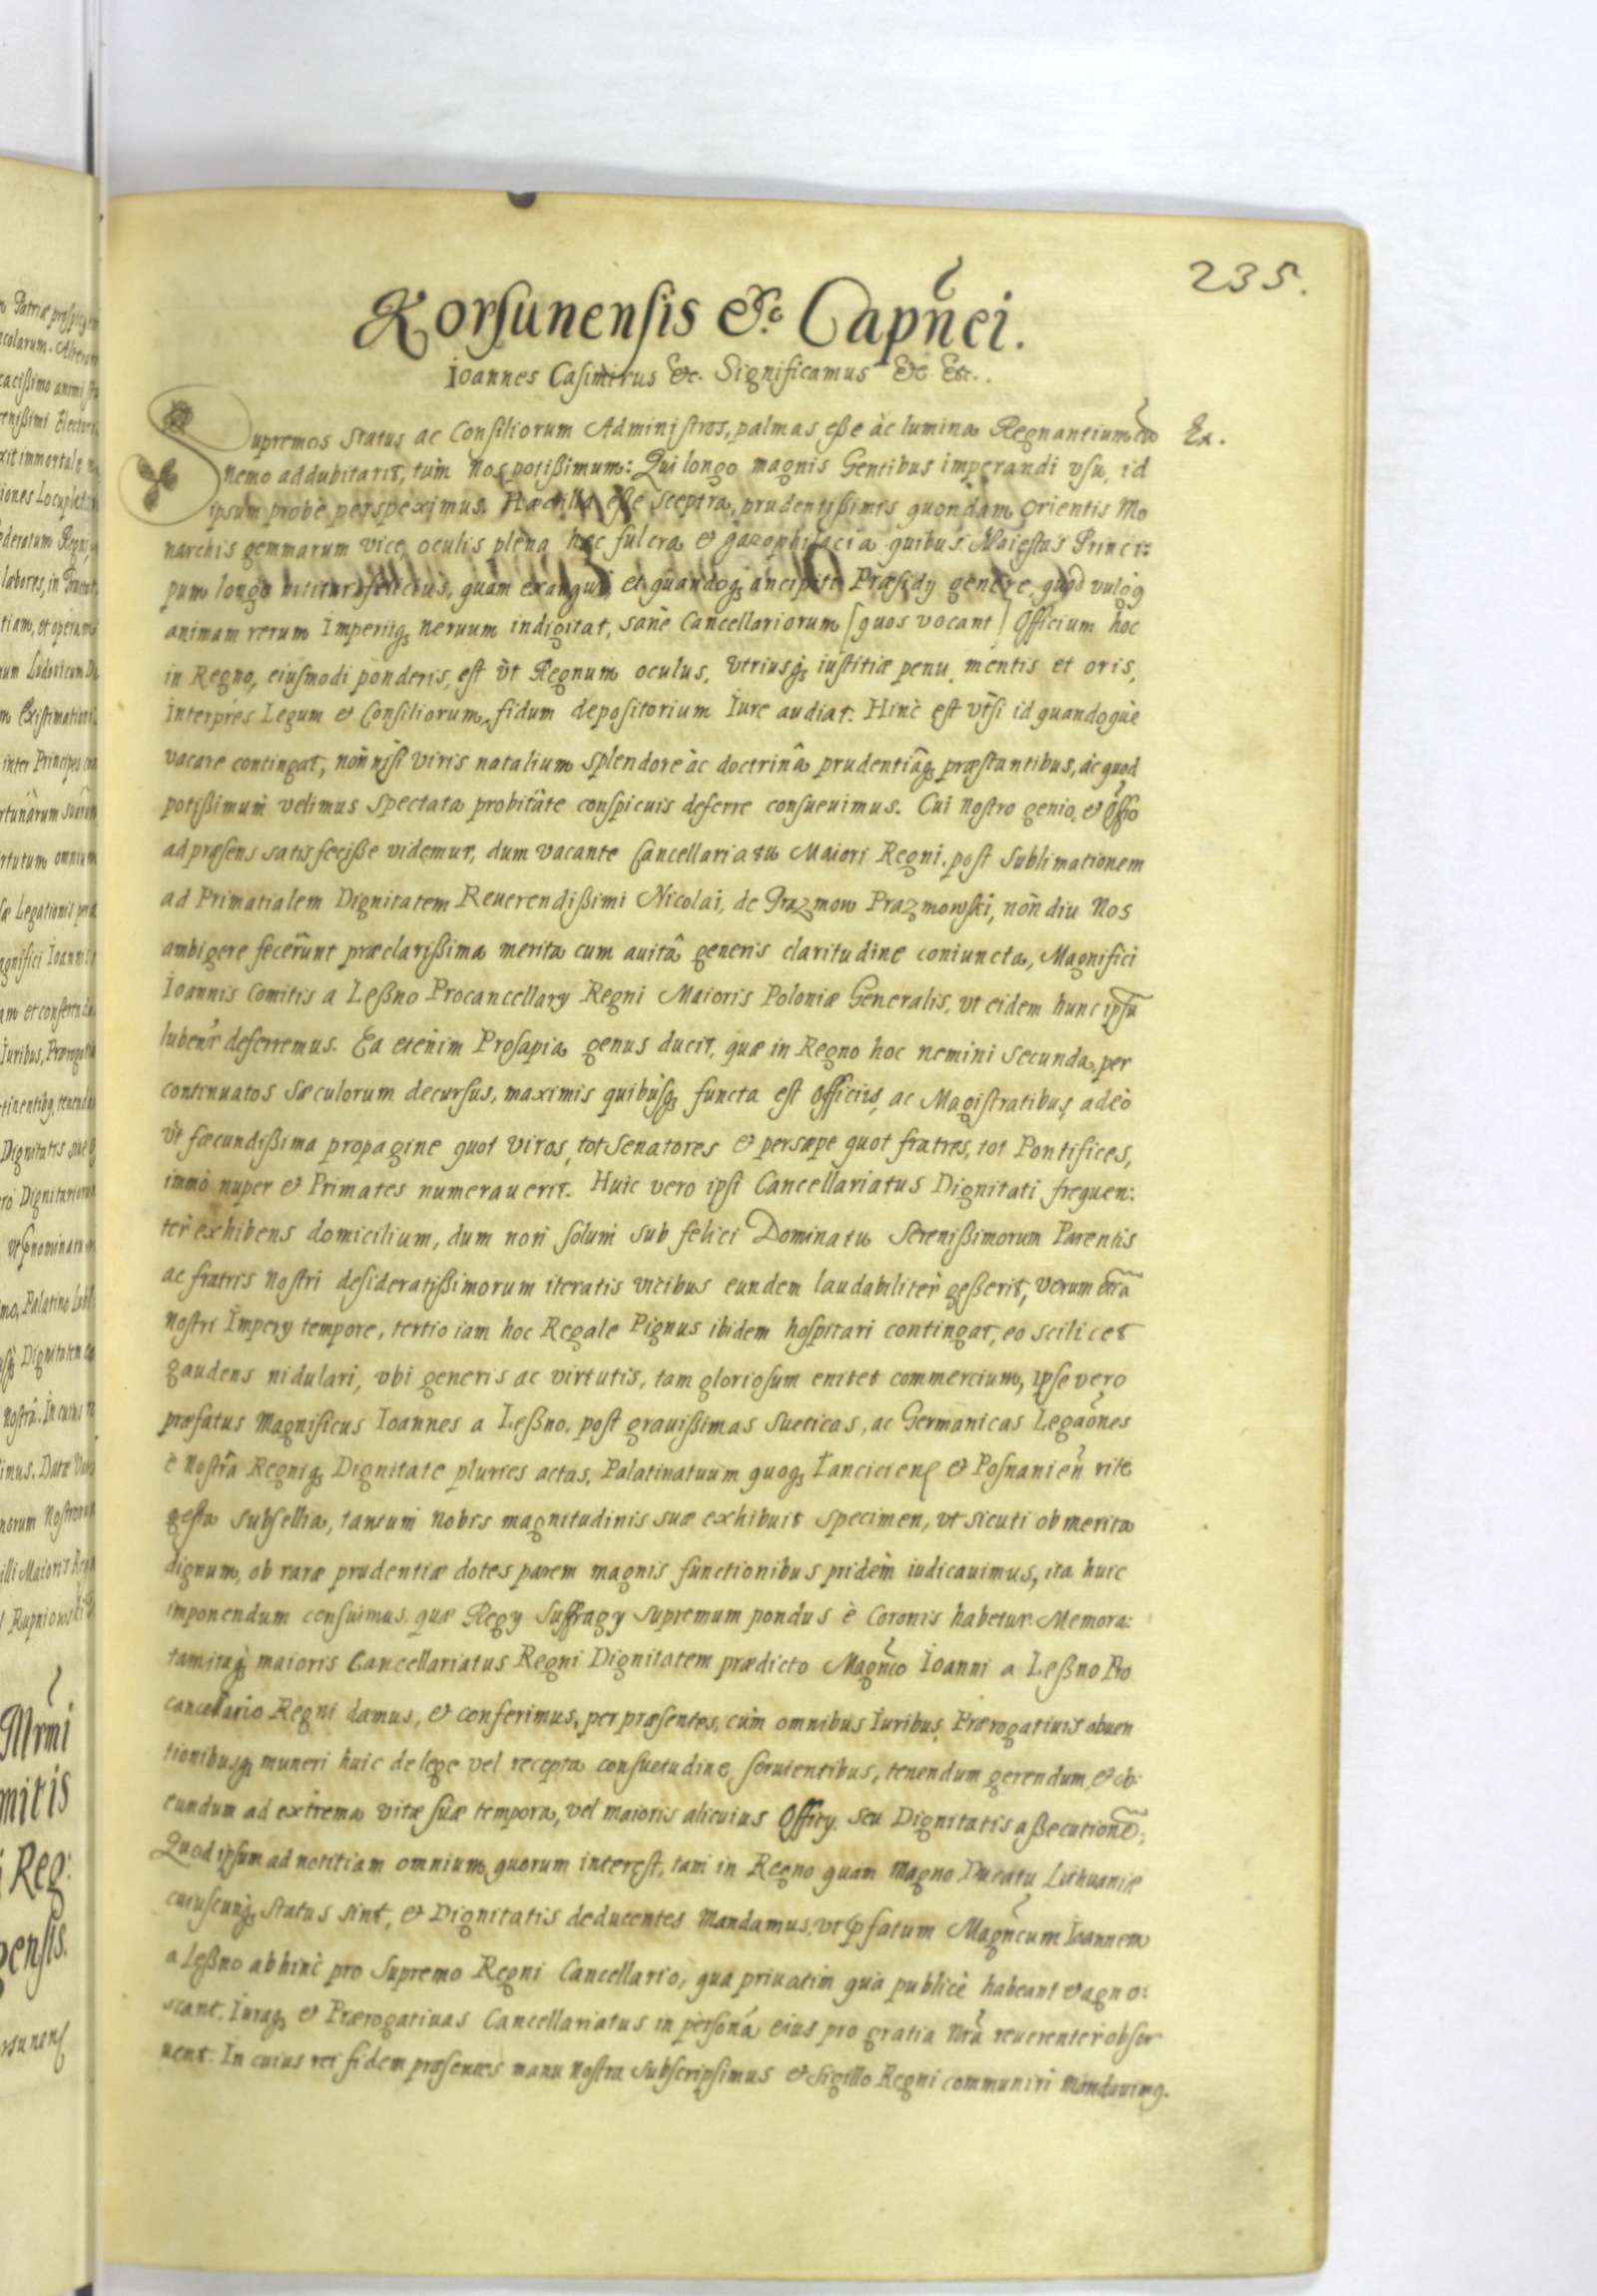 235.
Korsunensis &c. Capn̄ei.
Ioannes Casimirus &c. Significamus &c &c..
Supremos Status ac Consiliorum Administros, palmas eße àc lumina Regnantium Ex.
nemo addubitarit, tum Nos potißimum: Qui longo magnis Gentibus imperandi vsu, id
ipsum probè perspeximus. Hæc illa eße Sceptra, prudentißimis quondam Orientis Mo
narchis gemmarum vice, oculis plena hæc fulcra & gazophilacia quibus Maiestas Princi:
pum longe nititur felicius, quam exangui, et quandoq; ancipiti Præsidy genere, quod vulgq
animam rerum Imperiiq; neruum indigitat, sane Cancellariorum [quos vocant] Officium hoc
in Regno, eiusmodi ponderis, est vt Regnum oculus, vtriusq; iustitiæ penu, mentis et oris,
Interpres Legum & Consiliorum, fidum depositorium Iure audiat. Hinc est vtsi id quandoque
vacare contingat, non nisi viris natalium splendore àc doctrinâ prudentiâq; præstantibus, àc quod
potißimum velimus spectata probitâte conspicuis deferre consueuimus. Cui nostro genio, & Offio
ad præsens satis feciße videmur, dum vacante Cancellariatu Maiori Regni, post Sublimationem
ad Primatialem Dignitatem Reuerendißimi Nicolai, de Prazmow Prazmowski, non diu Nos
ambigere fecerunt præclarißima merita cum auitâ generis claritudine coniuncta, Magnifici
Ioannis Comitis a Leßno Procancellary Regni Maioris Poloniæ Generalis, vt eidem hunc ipsū
lubenr deferremus. Ea etenim Prosapia genus ducit, quæ in Regno hoc nemini secunda, per
continuatos Sæculorum decursus, maximis quibusq; functa est Officiis, ac Magistratibus, adeò
vt fæcundißima propagine quot viros, tot Senatores & persæpe quot fratres, tot Pontifices,
immò nuper & Primates numerauerit. Huic vero ipsi Cancellariatus Dignitati frequen:
ter exhibens domicilium, dum non solum sub felici Dominatu Serenißimorum Parentis
ac fratris Nostri desideratißimorum iteratis vicibus eundem laudabiliter geßerit, verum
Nostri Impery tempore, tertio iam hoc Regale Pignus ibidem hospitari contingat, eo scilicet
gaudens nidulari, vbi generis ac virtutis, tam gloriosum enitet commercium, ipse vero
præfatus Magnificus Ioannes a Leßno, post grauißimas Sueticas, ac Germanicas Legaōnes
è Nostra Regniq; Dignitate pluries actas, Palatinatuum quoq; Lanciciens & Posnanien̄ rite
gesta subsellia, tantum Nobis magnitudinis suæ exhibuit specimen, vt sicuti ob merita
dignum, ob raræ prudentiæ dotes parem magnis functionibus pridem iudicauimus, ita huic
imponendum censuimus, quæ Regy Suffragy supremum pondus è Coronis habetur. Memora:
tam itaq; maioris Cancellariatus Regni Dignitatem prædicto Magn̄co Ioanni a Leßno Pro
cancellario Regni damus, & conferimus, per præsentes, cum omnibus Iuribus, Prærogatiuis obuen
tionibusq; muneri huic de lege vel recepta consuetudine, seruientibus, tenendum gerendum, & ob:
eundum ad extrema vitæ suæ tempora, vel maioris alicuius Officy seu Dignitatis aßecutionē;
Quod ipsum ad notitiam omnium, quorum interest, tam in Regno quam Magno Ducatu Lithuaniæ
cuiuscunq; status sint, & Dignitatis deducentes Mandamus, vt pfatum Magn̄cum Ioannem
a Leßno abhinc pro Supremo Regni Cancellario, qua priuatim qua publicè habeant & agno:
scant, Iuraq; & Prærogatiuas Cancellariatus in personâ eius pro gratia Nrā reuerenter obser
uent. In cuius rei fidem præsentes manu Nostra subscripsimus & Sigillo Regni communiri Mandauimq.